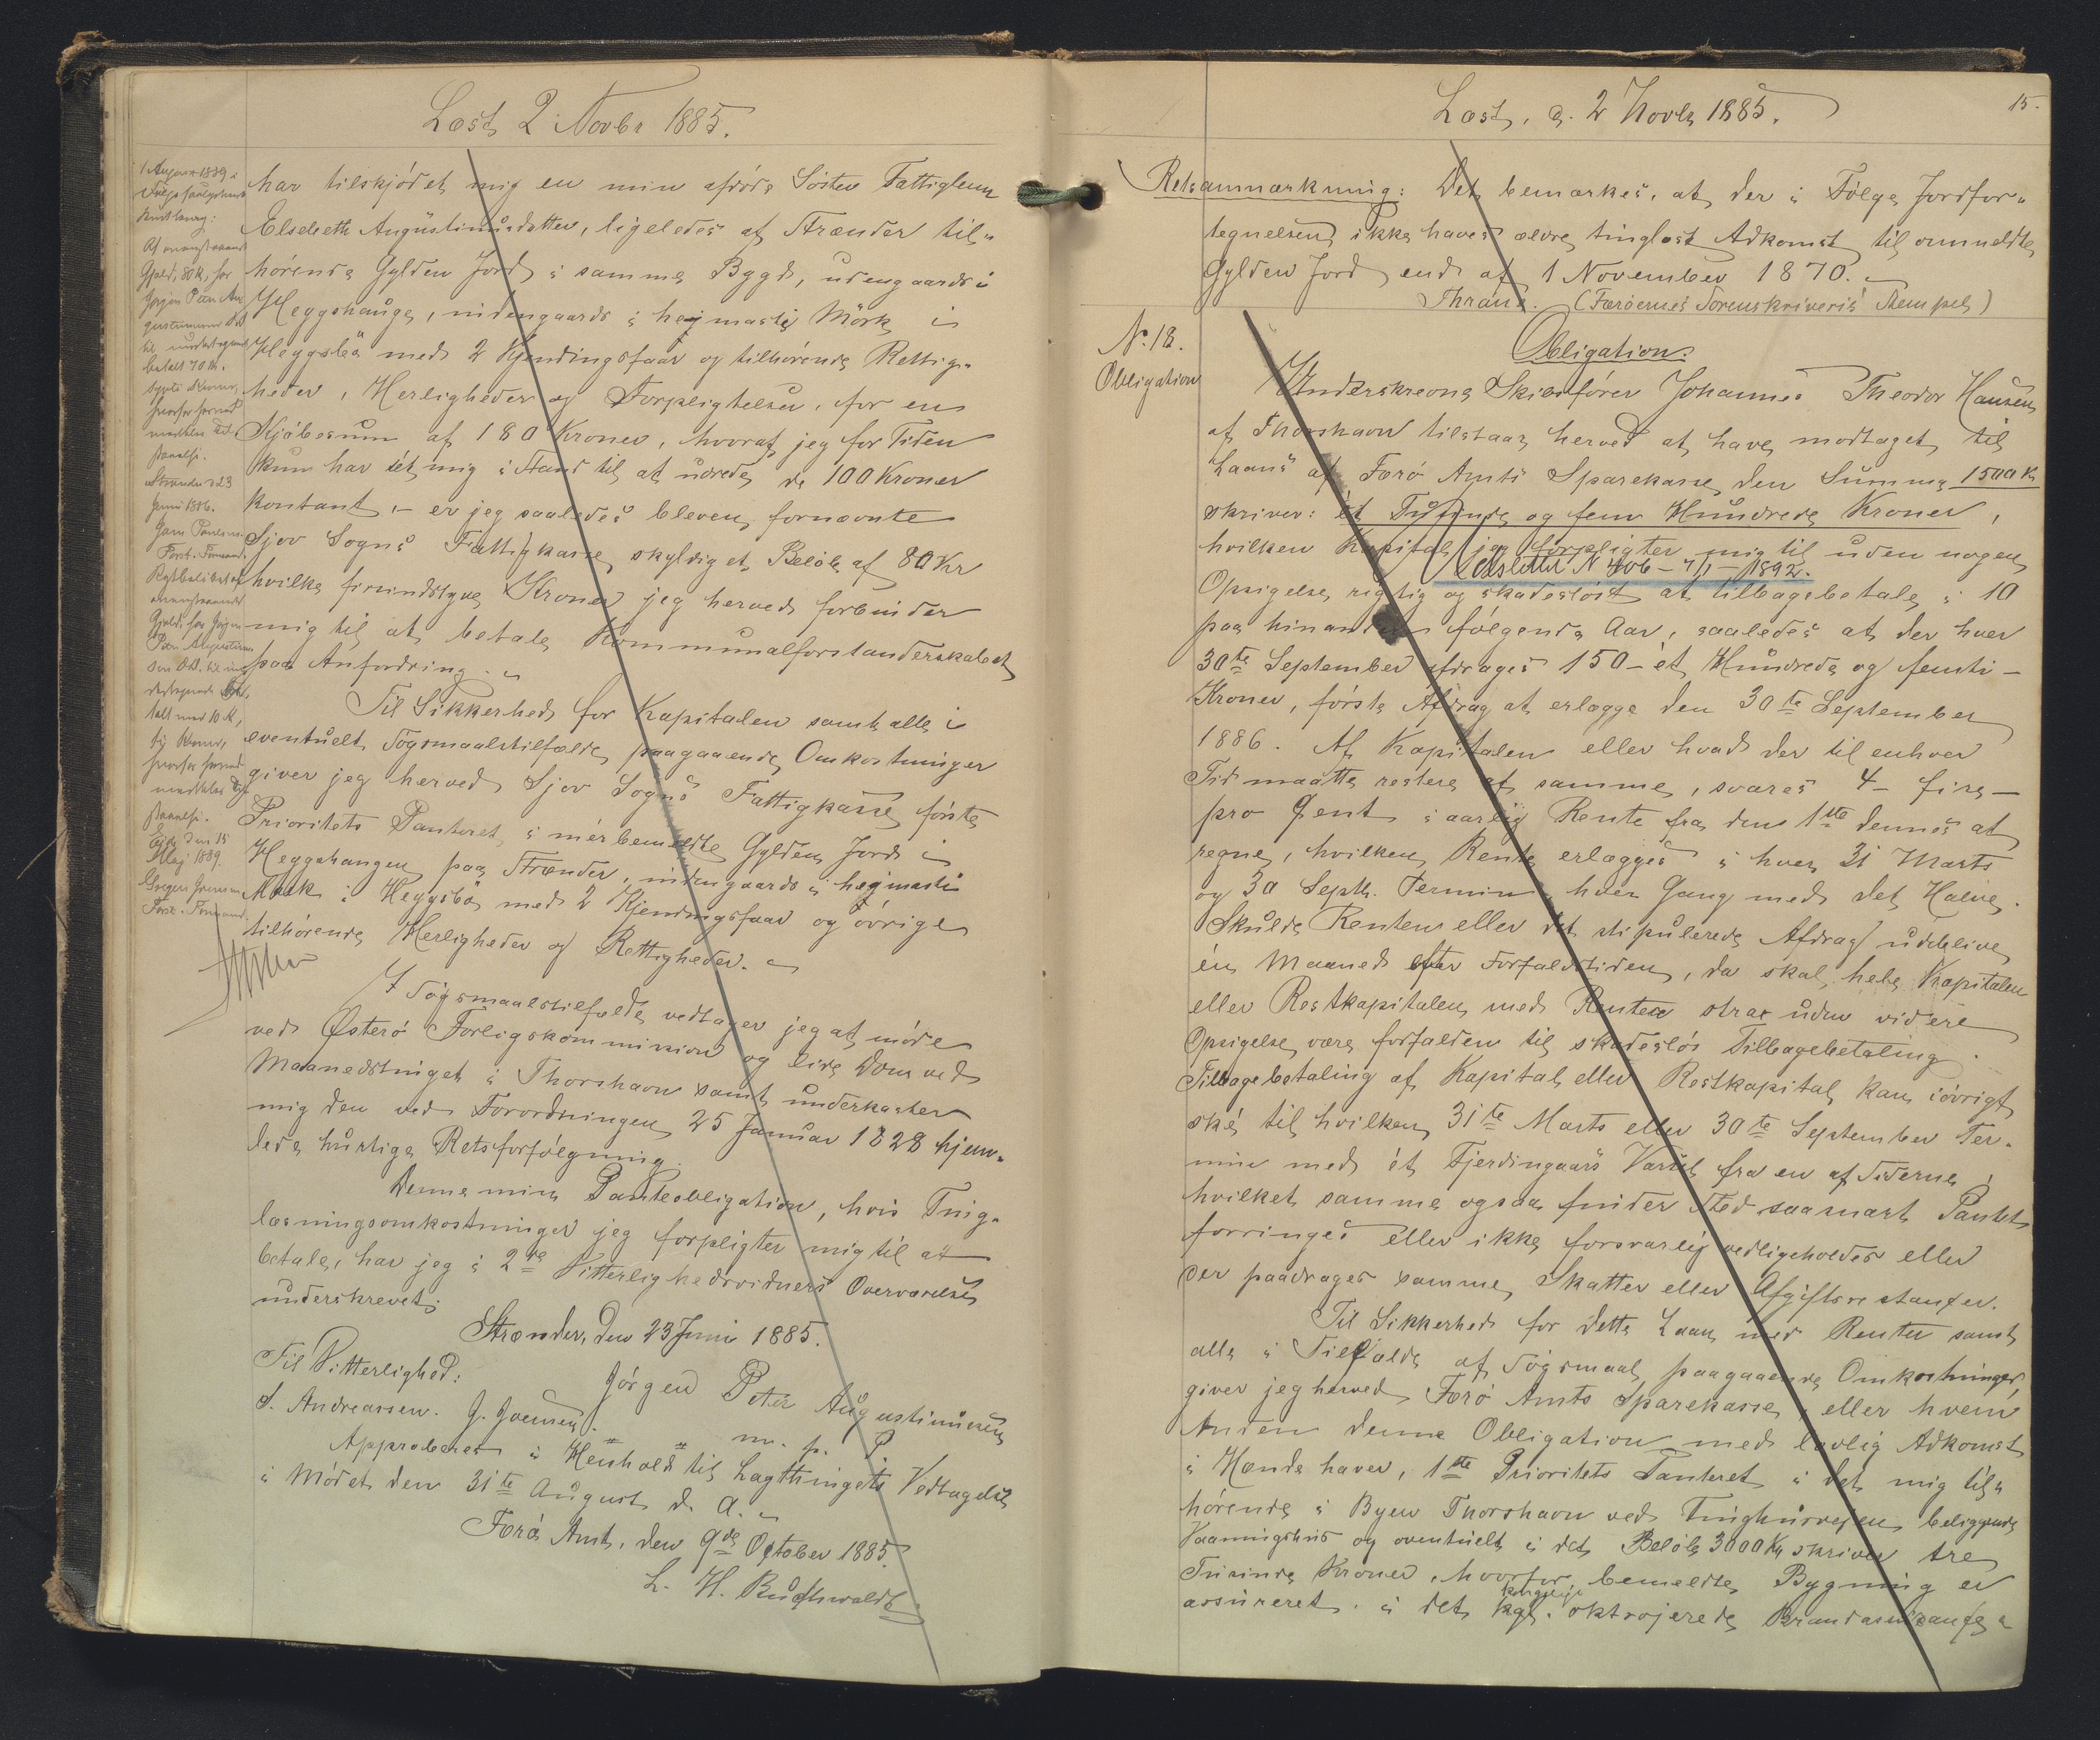 Læst 2 Novbr 1885.
1 August 1889 i
Af ovenstaaende
Gjæld, 80 K, har
Jørgen Peter Au
betalt 70 Kr.
sytti Kroner,
hvorfor herved
meddeles Til-
staaelse.
Strænder d 23
Juni 1886.
Forst. Formand.
Rigtbetalt af
ovenstaaende
Gjæld har Jørgen
Peter Augustinus
sen
talt med 10 K,
ti Kroner,
hvorfor herved
meddeles Til-
staaelse.
Eide den 15
Maj 1889.
Forst. Formand.
har tilskjødet mig en min afdøde Søster Fattiglem
Elsebeth Augustinusdatter, ligeledes af Strænder til-
hørende Gylden Jord i samme Bygd, udengaards i
Heggshauge, indengaards i hejmasti Mørk i
Heggsbø med 2 Kjendingsfaar og tilhørende Rettig-
heder, Herligheder og Forpligtelser, for en
Kjøbesum af 180 Kroner, hvoraf jeg for Tiden
kun har sét mig i Stand til at udrede de 100 Kroner
kontant, – er jeg saaledes bleven fornævnte
Sjov Sogns Fattigkasse skyldig et Beløb af 80 Kr
hvilke firsindstyve Kroner jeg herved forbinder
mig til at betale Kommunalforstanderskabet
paa Anfordring. –
Til Sikkerhed for Kapitalen samt alle i
eventuelt Søgsmaalstilfælde paagaaende Omkostninger
giver jeg herved Sjov Sogns Fattigkasse første
Prioritets Panteret i mérbemeldte Gylden Jord i
Heggshaugen paa Strænder, indengaards i hejmasti
Mørk i Heggsbø med 2 Kjendingsfaar og øvrige
tilhørende Herligheder og Rettigheder. –
I Søgsmaalstilfælde vedtager jeg at møde
ved Østerø Forligskommission og lide Dom ved
Maanedstinget i Thorshavn samt underkaster
mig den ved Forordningen 25 Januar 1828 hjem-
lede hurtige Retsforfølgning.
Denne min Panteobligation, hvis Ting-
læsningsomkostninger jeg forpligter mig til at
betale, har jeg i 2de Vitterlighedsvidners Overværelse
underskrevet.
Strænder, den 23 Juni 1885.
Til Vitterlighed:
Jørgen Peter Augustinussen
S. Andreassen. J. Joensen.
m. p. P
Approberes i Henhold til Lagthingets Vedtagelse
i Mødet den 31te August d. A. –
Færø Amt, den 9de October 1885.
L. H. Buchwaldt
Læst, d. 2 Novbr 1885.
15.
Retsanmærkning: Det bemærkes, at der i Følge Jordfor-
tegnelsen ikke haves ældre tinglæst Adkomst til ommeldte
Gylden Jord end af 1 November 1870. –
Thrane. (Færøernes Sorenskriveris Stempel)
No. 18.
Obligation
Obligation.
Underskrevne Skibsfører Johannes Theodor Hansen
af Thorshavn tilstaar herved at have modtaget til
Laans af Færø Amts Sparekasse den Summa 1500 K
skriver: ét Tusinde og fem Hundrede Kroner,
hvilken Kapital jeg forpligter mig til uden nogen
Udslettet N 406 – 7/1 – 1892.
Opsigelse rigtig og skadesløst at tilbagebetale i 10
paa hinanden følgende Aar, saaledes at der hver
30te September afdrages 150 – ét Hundrede og femti –
Kroner, første Afdrag at erlægge den 30te September
1886. Af Kapitalen eller hvad der til enhver
Tid maatte restere af samme, svares 4 – fire –
pro Cent i aarlig Rente fra den 1ste dennes at
regne, hvilken Rente erlægges i hver 31 Marts
og 30 Septb. Termin hver Gang med det Halve.
Skulde Renten eller det stipulerede Afdrag udeblive
én Maaned efter Forfaldstiden, da skal hele Kapitalen
eller Restkapitalen med Renter strax uden videre
Opsigelse være forfalden til skadesløs Tilbagebetaling.
Tilbagebetaling af Kapital eller Restkapital kan iøvrigt
ské til hvilken 31te Marts eller 30te September Ter-
min med ét Fjerdingaars Varsel fra en af Siderne,
hvilket samme ogsaa finder Sted saasnart Pantet
forringes eller ikke forsvarlig vedligeholdes eller
der paadrages samme Skatter eller Afgiftsrestancer.
Til Sikkerhed for dette Laan med Renter samt
alle i Tilfælde af Søgsmaal paagaaende Omkostninger,
giver jeg herved Færø Amts Sparekasse, eller hvem
Anden denne Obligation med lovlig Adkomst
i Hænde haver, 1ste Prioritets Panteret i det mig til-
hørende i Byen Thorshavn ved Tinghusvejen beliggende
Vaaningshus og eventuelt i det Beløb 3000 Kr, skriver tre
Tusinde Kroner, hvorfor bemeldte Bygning er
kongelige
assureret i det kgl. oktrojerede Brandassurance